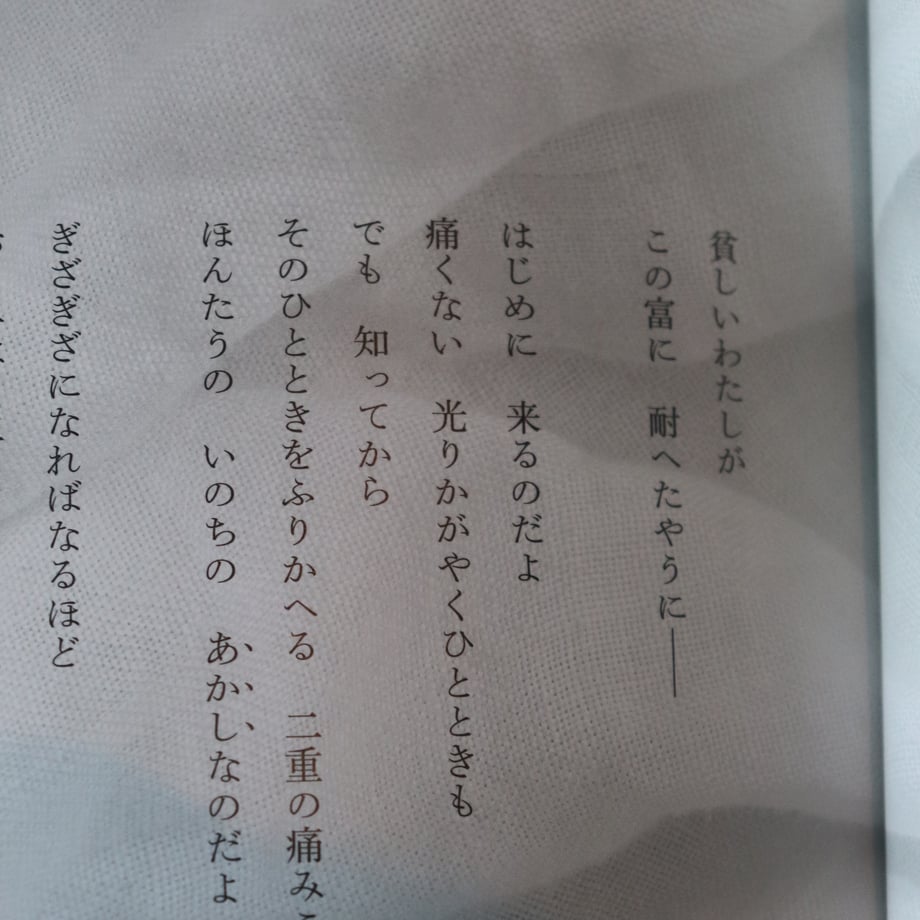 貧しいわたしが
この富に　耐へたやうに──
はじめに　来るのだよ
痛くない　光りかがやくひとときも
でも　知ってから
そのひとときをふりかへる　二重の痛み
ほんたうの　いのちの　あかしなのだよ
ぎざぎざになればなるほど